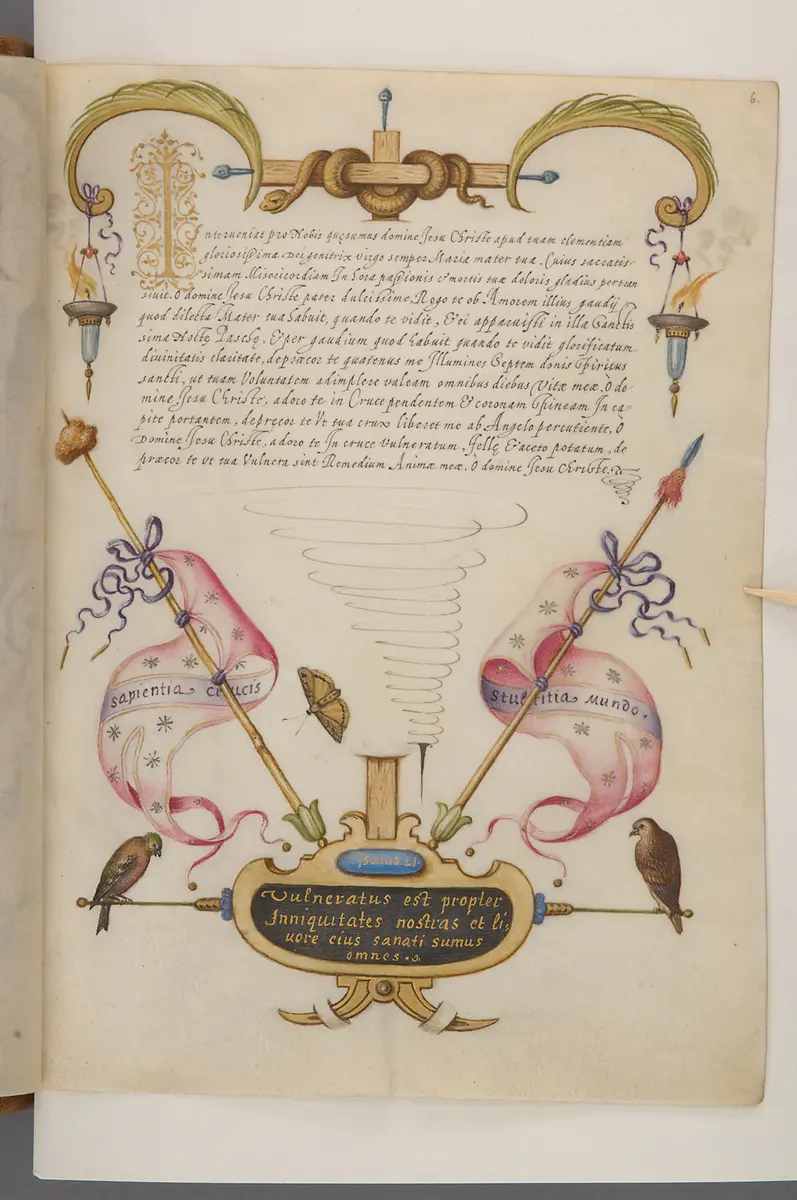 6.
Interueniat pro Nobis quęsumus domine Jesu Christe apud tuam clementiam
gloriosissima Dei genitrix virgo semper Maria mater tua. Cuius sacratis=
simam Misericordiam In hora passionis et mortis tuæ doloris gladius pertran
siuit. O domine Jesu Christe pater dulcissime, Rogo te ob Amorem illius gaudij
quod dilecta Mater tua habuit, quando te vidit, & ei apparuisti in illa Sanctis
sima Nocte Paschę, & per gaudium quod habuit quando te vidit glorificatum
diuinitatis claritate, depræcor te quatenus me Illumines Septem donis Spiritus
sancti, ut tuam Voluntatem adimplere valeam omnibus diebus Vitæ meæ. O do=
mine Jesu Christe, adoro te in Cruce pendentem & coronam Spineam In ca=
pite portantem, deprecor te Vt tua crux liberet me ab Angelo percutiente. O
Domine Jesu Christe, adoro te In cruce Vulneratum, felle & aceto potatum, de
præcor te vt tua Vulnera sint Remedium Animæ meæ. O domine Jesu Christe.
sapientia crucis
stultitia mundo.
Vulneratus est propter
Inniquitates nostras et li=
uore eius sanati sumus
omnes